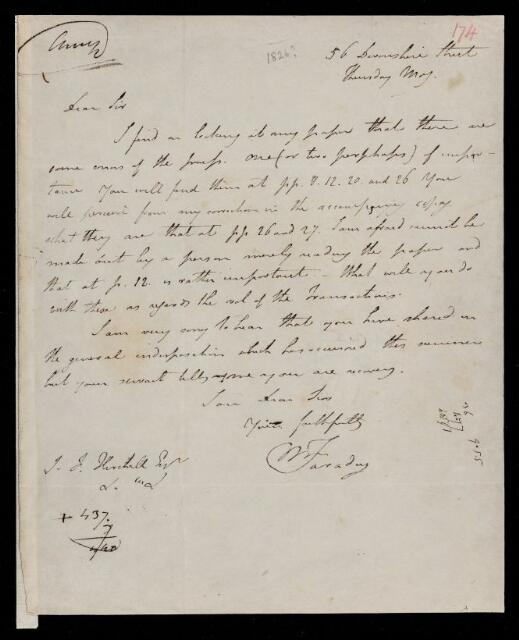 174
1826?
56 Devonshire Street
Thursday Mog.
Dear Sir
I find on looking at my paper that there are
some errors of the press. One (or two perhaps) of impor-
tance You will find them at pp. 8. 12. 20. and 26 You
will perceive from my correction in the accompanying copy
what they are that at pp 26 and 27. I am afraid cannot be
made out by a person merely reading the paper and
that at p. 12. is rather important - What will you do
with these as regards the vol of the Transactions.
I am very sorry to hear that you have shared in
the general indisposition which has occurred this summer
but your servant tells me you are recovering.
I am Dear Sir
Yours faithfully
M Faraday
J. F. Herschel Esqr
&c &c
+ 437.
7